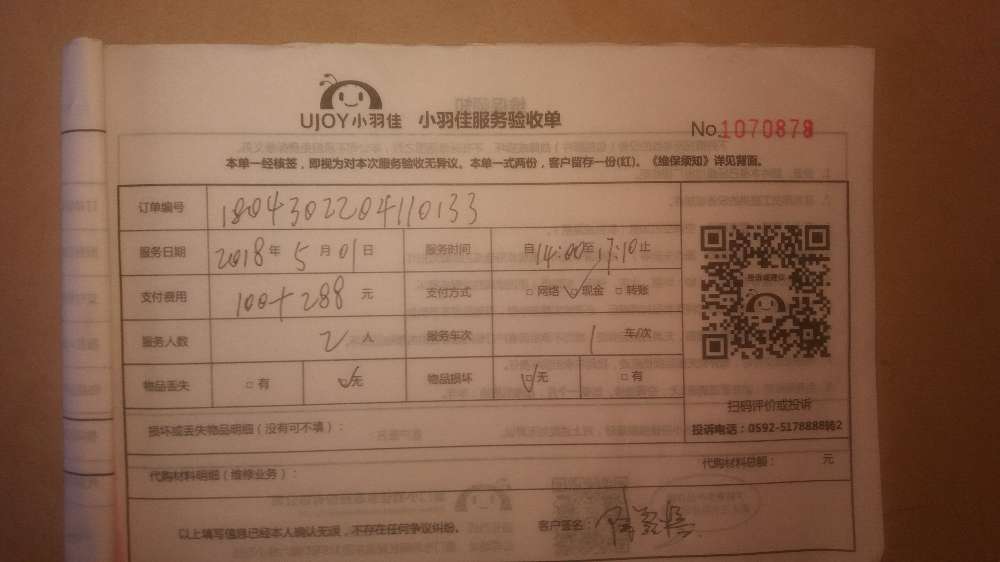 UJOY小羽佳 小羽佳服务验收单
No.1070878
本单一经核签，即视为对本次服务验收无异议。本单一式两份，客户留存一份(红)。《维保须知》详见背面。
订单编号 1804302204110133
服务日期 2018年 5月 01日 服务时间 自14:00至17:10止
支付费用 100+288 元 支付方式 □网络 ☑现金 □转账
服务人数 2人 服务车次 1 车/次
物品丢失 □有 ☑无 物品损坏 ☑无 □有
投诉或建议
扫码评价或投诉
投诉电话：0592-5178888转2
损坏或丢失物品明细（没有可不填）：
代购材料明细（维修业务）： 代购材料总额： 元
以上填写信息已经本人确认无误，不存在任何争议纠纷。 客户签名：